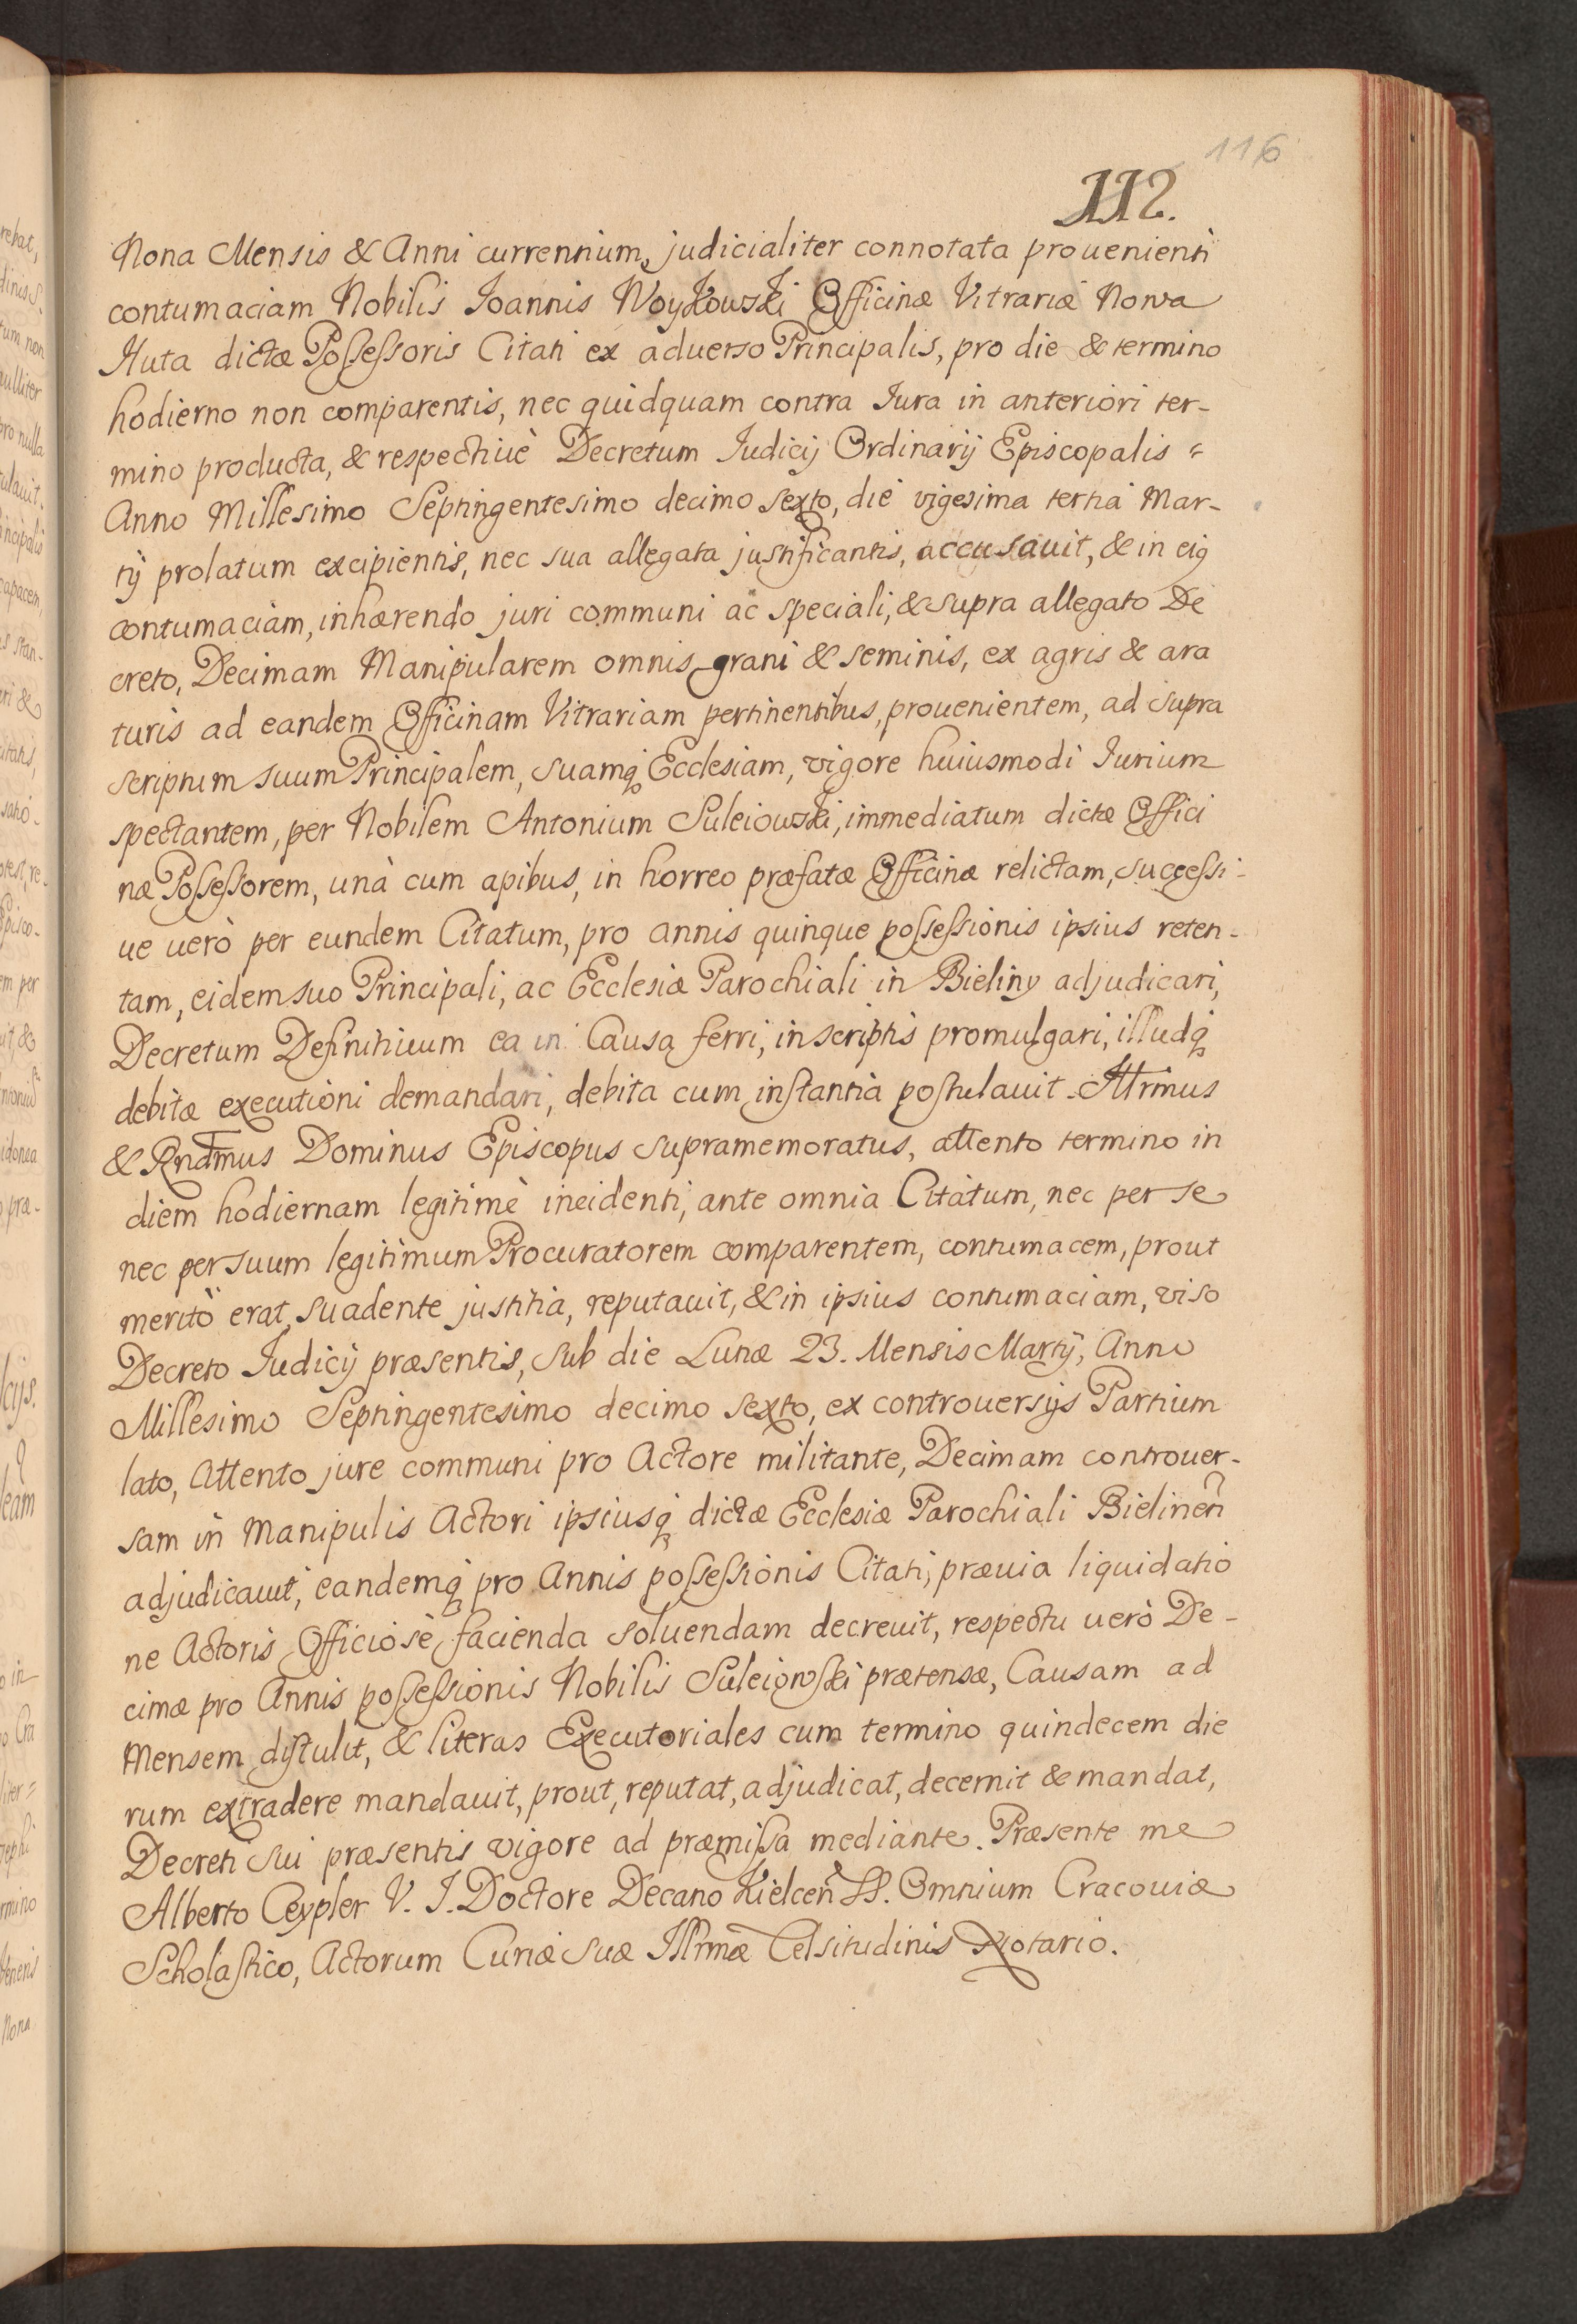 116
112.
Nona Mensis & Anni currentium, judicialiter connotata prouenienti
contumaciam Nobilis Joannis Woykowski Officinæ Vitrariæ Nowa
Huta dictæ Possessoris Citati ex aduerso Principalis, pro die & termino
hodierno non comparentis, nec quidquam contra Jura in anteriori ter-
mino producta, & respectiuè Decretum Judicij Ordinarij Episcopalis =
Anno Millesimo Septingentesimo decimo sexto, die vigesima tertia Mar-
tij prolatum excipientis, nec sua allegata justificantis, accusauit, & in eig
contumaciam, inhærendo juri communi ac speciali, & supra allegato De
creto, Decimam Manipularem omnis grani & seminis, ex agris & ara
turis ad eandem Officinam Vitrariam pertinentibus, prouenientem, ad supra
scriptum suum Principalem, suamq; Ecclesiam, vigore huiusmodi Jurium
spectantem, per Nobilem Antonium Suleiowski, immediatum dictæ Offici
næ Possessorem, unà cum apibus, in horreo præfatæ Officinæ relictam, successi-
ue uerò per eundem Citatum, pro annis quinque possessionis ipsius reten-
tam, eidem suo Principali, ac Ecclesiæ Parochiali in Bieliny adjudicari,
Decretum Definitiuum ea in Causa ferri, in scriptis promulgari, illudq;
debitæ executioni demandari, debita cum instantia postulauit. Illrimus
& Rndmus Dominus Episcopus supramemoratus, attento termino in
diem hodiernam legitimè incidenti, ante omnia Citatum, nec per se
nec per suum legitimum Procuratorem comparentem, contumacem, prout
meritò erat, suadente justitia, reputauit, & in ipsius contumaciam, viso
Decreto Judicij præsentis, sub die Lunæ 23. Mensis Martij, Anno
Millesimo Septingentesimo decimo sexto, ex controuersijs Partium
lato, Attento jure communi pro Actore militante, Decimam controuer-
sam in Manipulis Actori ipsiusq; dictæ Ecclesiæ Parochiali Bielinen̄
adjudicauit, eandemq; pro Annis possessionis Citati, præuia liquidatio
ne Actoris Officiosè facienda soluendam decreuit, respectu uerò De-
cimæ pro Annis possessionis Nobilis Suleiowski prætensæ, Causam ad
Mensem distulit, & literas Executoriales cum termino quindecem die
rum extradere mandauit, prout, reputat, adjudicat, decernit & mandat,
Decreti sui præsentis vigore ad præmissa mediante. Præsente me
Alberto Ceypler V. J. Doctore Decano Kielcen̄ SS. Omnium Cracouiæ
Scholastico, Actorum Curiæ Suæ Illrmæ Celsitudinis Notario.